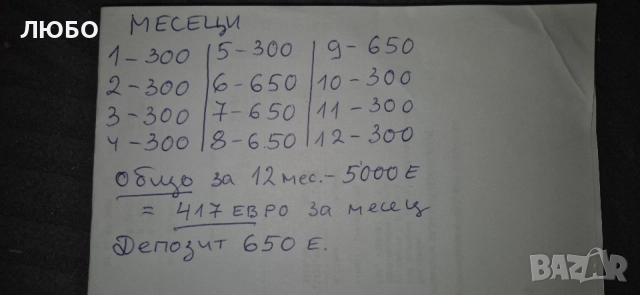 ЛЮБО
МЕСЕЦИ
1-300 5-300 9-650
2-300 6-650 10-300
3-300 7-650 11-300
4-300 8-650 12-300
Общо за 12 мес.- 5000 Е
= 417 ЕВРО за месец
Депозит 650 Е.
BAZAR